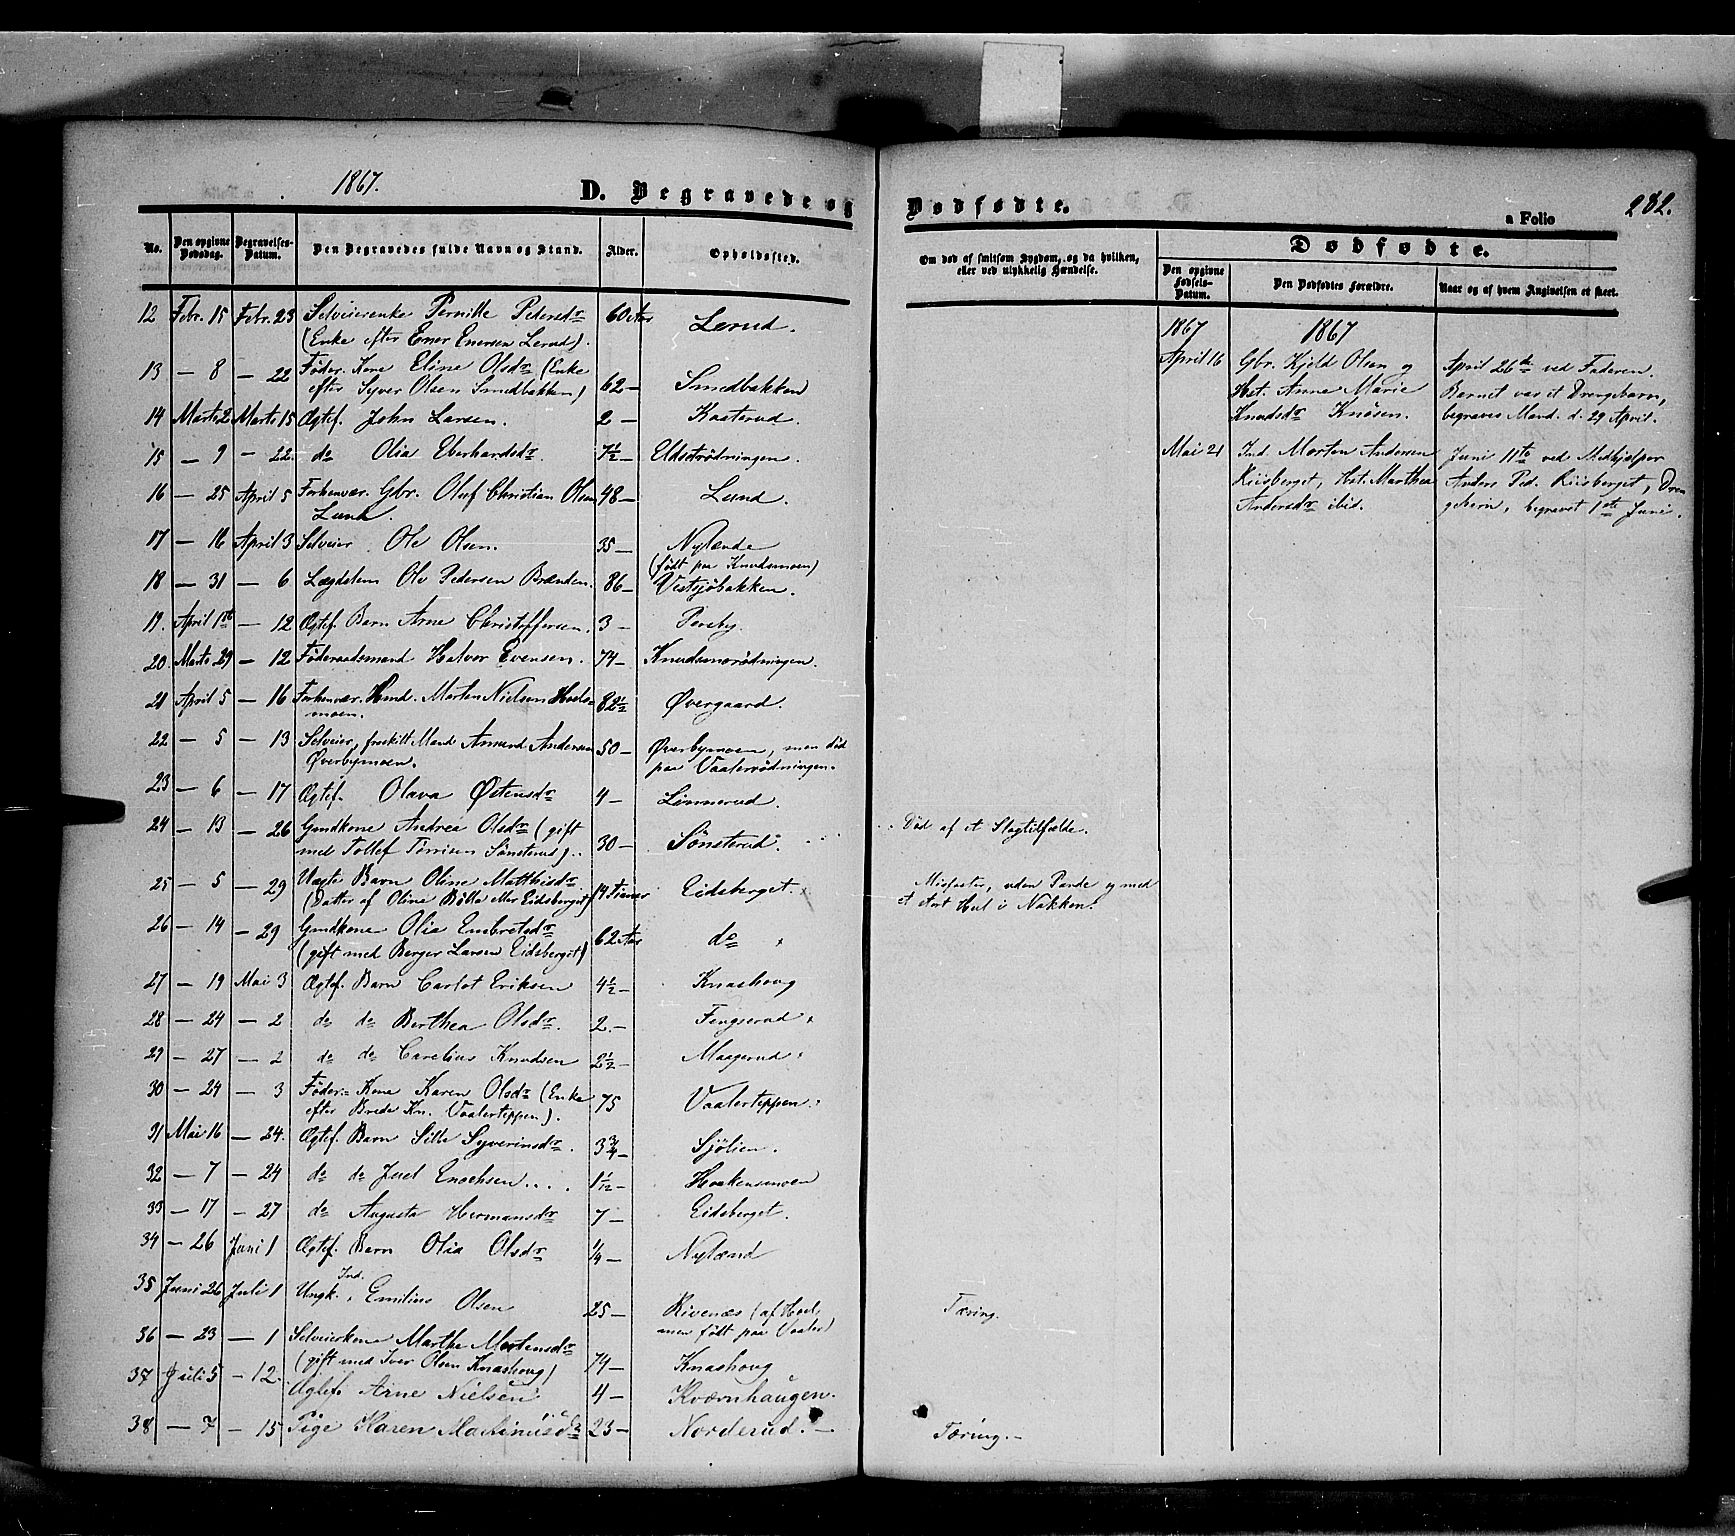 1867.
D. Begravede og Dødfødte.
a Folio 282.
No. Den opgivne Dødsdag. Begravelses-Datum. Den Begravedes fulde Navn og Stand. Alder. Opholdssted.
Om død af smitsom Sygdom, og da hvilken, eller ved ulykkelig Hændelse.
Dødfødte.
Den opgivne Fødsels-Datum. Den Dødfødtes Forældre. Naar og af hvem Angivelsen et skeet.
12 Febr. 15 Febr. 23 Selveierenke Pernille Pedersdr 60 Aar Lerud.
(Enke efter Ener Enersen Lerud).
13 — 8 — 22 Føder. Kone Eline Olsdr (Enke
efter Syver Olsen Smedbakken) 62 — Smedbakken
14 Marts 2 Marts 15 Ægtef. John Larsen. 2 — Kasterud.
15 — 9 — 22. do Olia Eberhardsdr. 7½ — Eldsetrødningen.
16 — 25 April 5 Forhenvær. Gbr. Oluf Christian Olsen 48 — Lund.
Lund.
17 — 16 April 3 Selveier Ole Olsen. 35 — Nylænde
(født paa Knudsmoen)
18 — 31 — 6 Lægdslem Ole Pedersen Brænden. 86 — Vestsjøbakken.
19. April 1ste — 12 Ægtef. Barn Arne Christoffersen. 3 — Porsby.
20. Marts 29 — 12 Føderaadsmand Halvor Evensen. 74 — Knudsmorødningen.
21 April 5 — 16 Forhenvær. Hmd. Morten Nielsen Hoels-
moen. 82½ Øvergaard.
22 — 5 — 13 Selveier, fraskilt Mand Amund Andersen 50 — Øverbymoen, men død
Øverbymoen. paa Vaalerrødningen.
23 — 6 — 17 Ægtef. Olava Østensdr 4 — Linnerud.
24 — 13 — 26 Gmdkone Andrea Olsdr (gift
med Tollef Tørrisen Sønsterud). 30 — Sønsterud. Død af et Slagtilfælde.
25 — 5 — 29 Uægte Barn Oline Matthisdr
(Datter af Olina Bølla eller Eidsberget) 14 Timer Eidsberget Misfoster, uden Pande og med
et stort Hul i Nakken.
26 — 14 — 29 Gmdkone Olia Embretsdr
(gift med Berger Larsen Eidsberget) 62 Aar do
27 — 19 Mai 3 Ægtef. Barn Carlot Eriksen 4½ — Knashoug
28 — 24 — 2 do do Berthea Olsdr. 2. — Fingserud
29 — 27 — 2 do do Carelius Knudsen 2½ — Maagerud
30 — 24 — 3 Føder. Kone Karen Olsdr (Enke
efter Brede Kn. Vaalerteppen). 75 Vaalerteppen.
31 Mai 16 — 24. Ægtef. Barn Sille Syverinsdr. 3¾ — Sjølien.
32 — 7 — 24 do do Juel Enochsen.... 1 1/12 — Haakensmoen
33 — 17 — 27 do Augusta Hermansdr 7 — Eidsberget.
34 — 26 Juni 1 Ægtef. Barn Olia Olsdr ¼ — Nylænd
35 Juni 26 Juli 1 Ungk. Ind. Emilius Olsen 25 — Rivenæs (af Hoel,
men født paa Vaaler) Tæring.
36 — 23 — 1 Selveierkone Marthe Mortensdr
(gift med Iver Olsen Knashoug) 74 — Knashoug
37 Juli 5 — 12. Ægtef. Arne Nielsen 4 — Kværnhaugen.
38 — 7 — 15 Pige Karen Mathinusdr 23 — Norderud. Tæring. —
1867 1867
April 16 Gbr. Kjeld Olsen og April 26de ved Faderen.
Hst. Anne Marie Barnet var et Drengebarn,
Knudsdr Knøsen. begraves Mand. d. 29 April.
Mai 21 Ind. Morten Andersen Juni 11te ved Medhjelper
Riisberget, Hst. Marthea Anders Ped. Riisberget, Dren
Andersdr ibid. gebarn, begravet 1ste Juni.